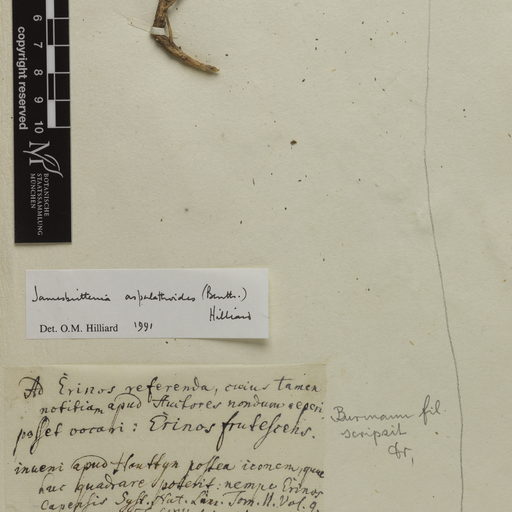 6
7
8
9
10
copyright reserved
BOTANISCHE
STAATSSAMMLUNG
MÜNCHEN
Jamesbrittenia aspalathoides (Benth.)
Hilliard
Det. O.M. Hilliard 1991
Ad Erinos referenda, cuius tamen
notitiam apud Auctores nondum reperi
posset vocari: Erinos frutescens.
inveni apud Houttyn postea iconem, quae
huc quadrare poterit: nempe Erinos
Capensis Syst. Nat. Linn. Tom. II. Vol. 9.
Burmann fil.
scripsit